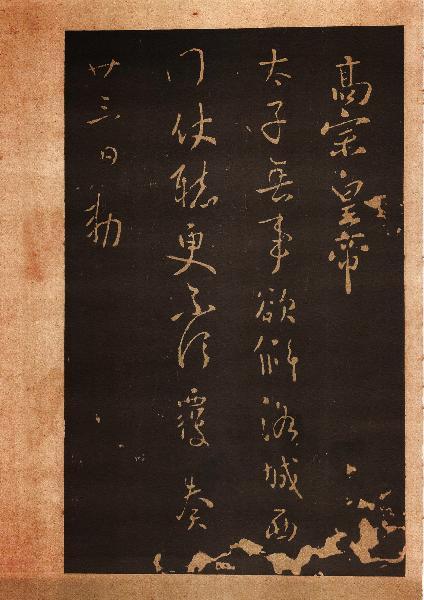 高宗皇帝
太子無事欲解洛城西
門仗聽更不須覆奏
廿三日勅